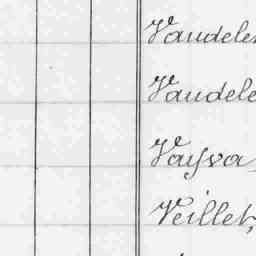 Vaudele
Vaudele
Vayva
Veillet,